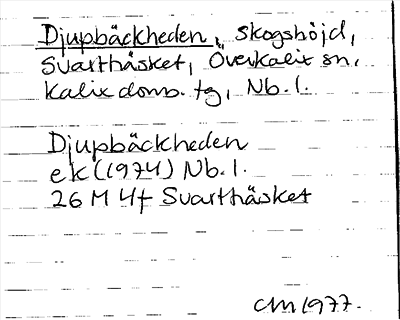 Djupbäckheden, skogshöjd,
Svarthäsket, Överkalix sn,
Kalix doms. tg, Nb. l.
Djupbäckheden
ek (1974) Nb. l.
26 M 4f Svarthäsket
CM 1977.